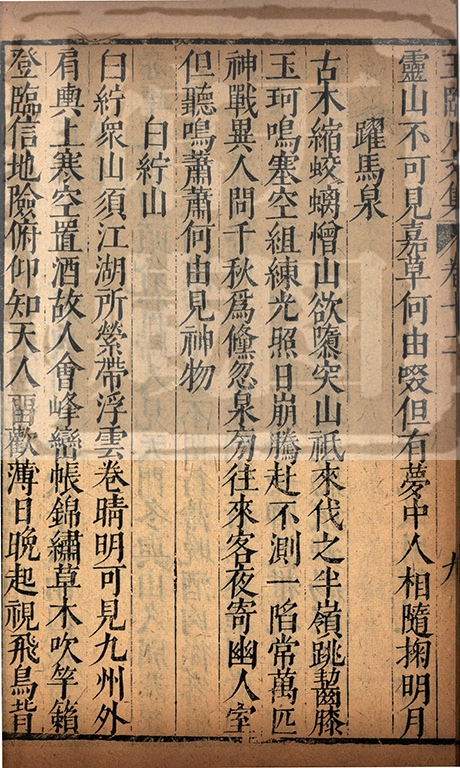 王臨川文集 卷十二 九
靈山不可見嘉草何由啜但有夢中人相隨掬明月
躍馬泉
古木縮蛟螭憎山欲隳突山祇來伐之半嶺跳齧膝
玉珂鳴塞空組練光照日崩騰赴不測一陷常萬匹
神戰異人間千秋爲儵忽泉旁往來客夜寄幽人室
但聽鳴蕭蕭何由見神物
白紵山
白紵衆山須江湖所縈帶浮雲卷晴明可見九州外
肩輿上寒空置酒故人會峰巒帳錦繡草木吹竽籟
登臨信地險俯仰知天人畱歡薄日晚起視飛鳥背